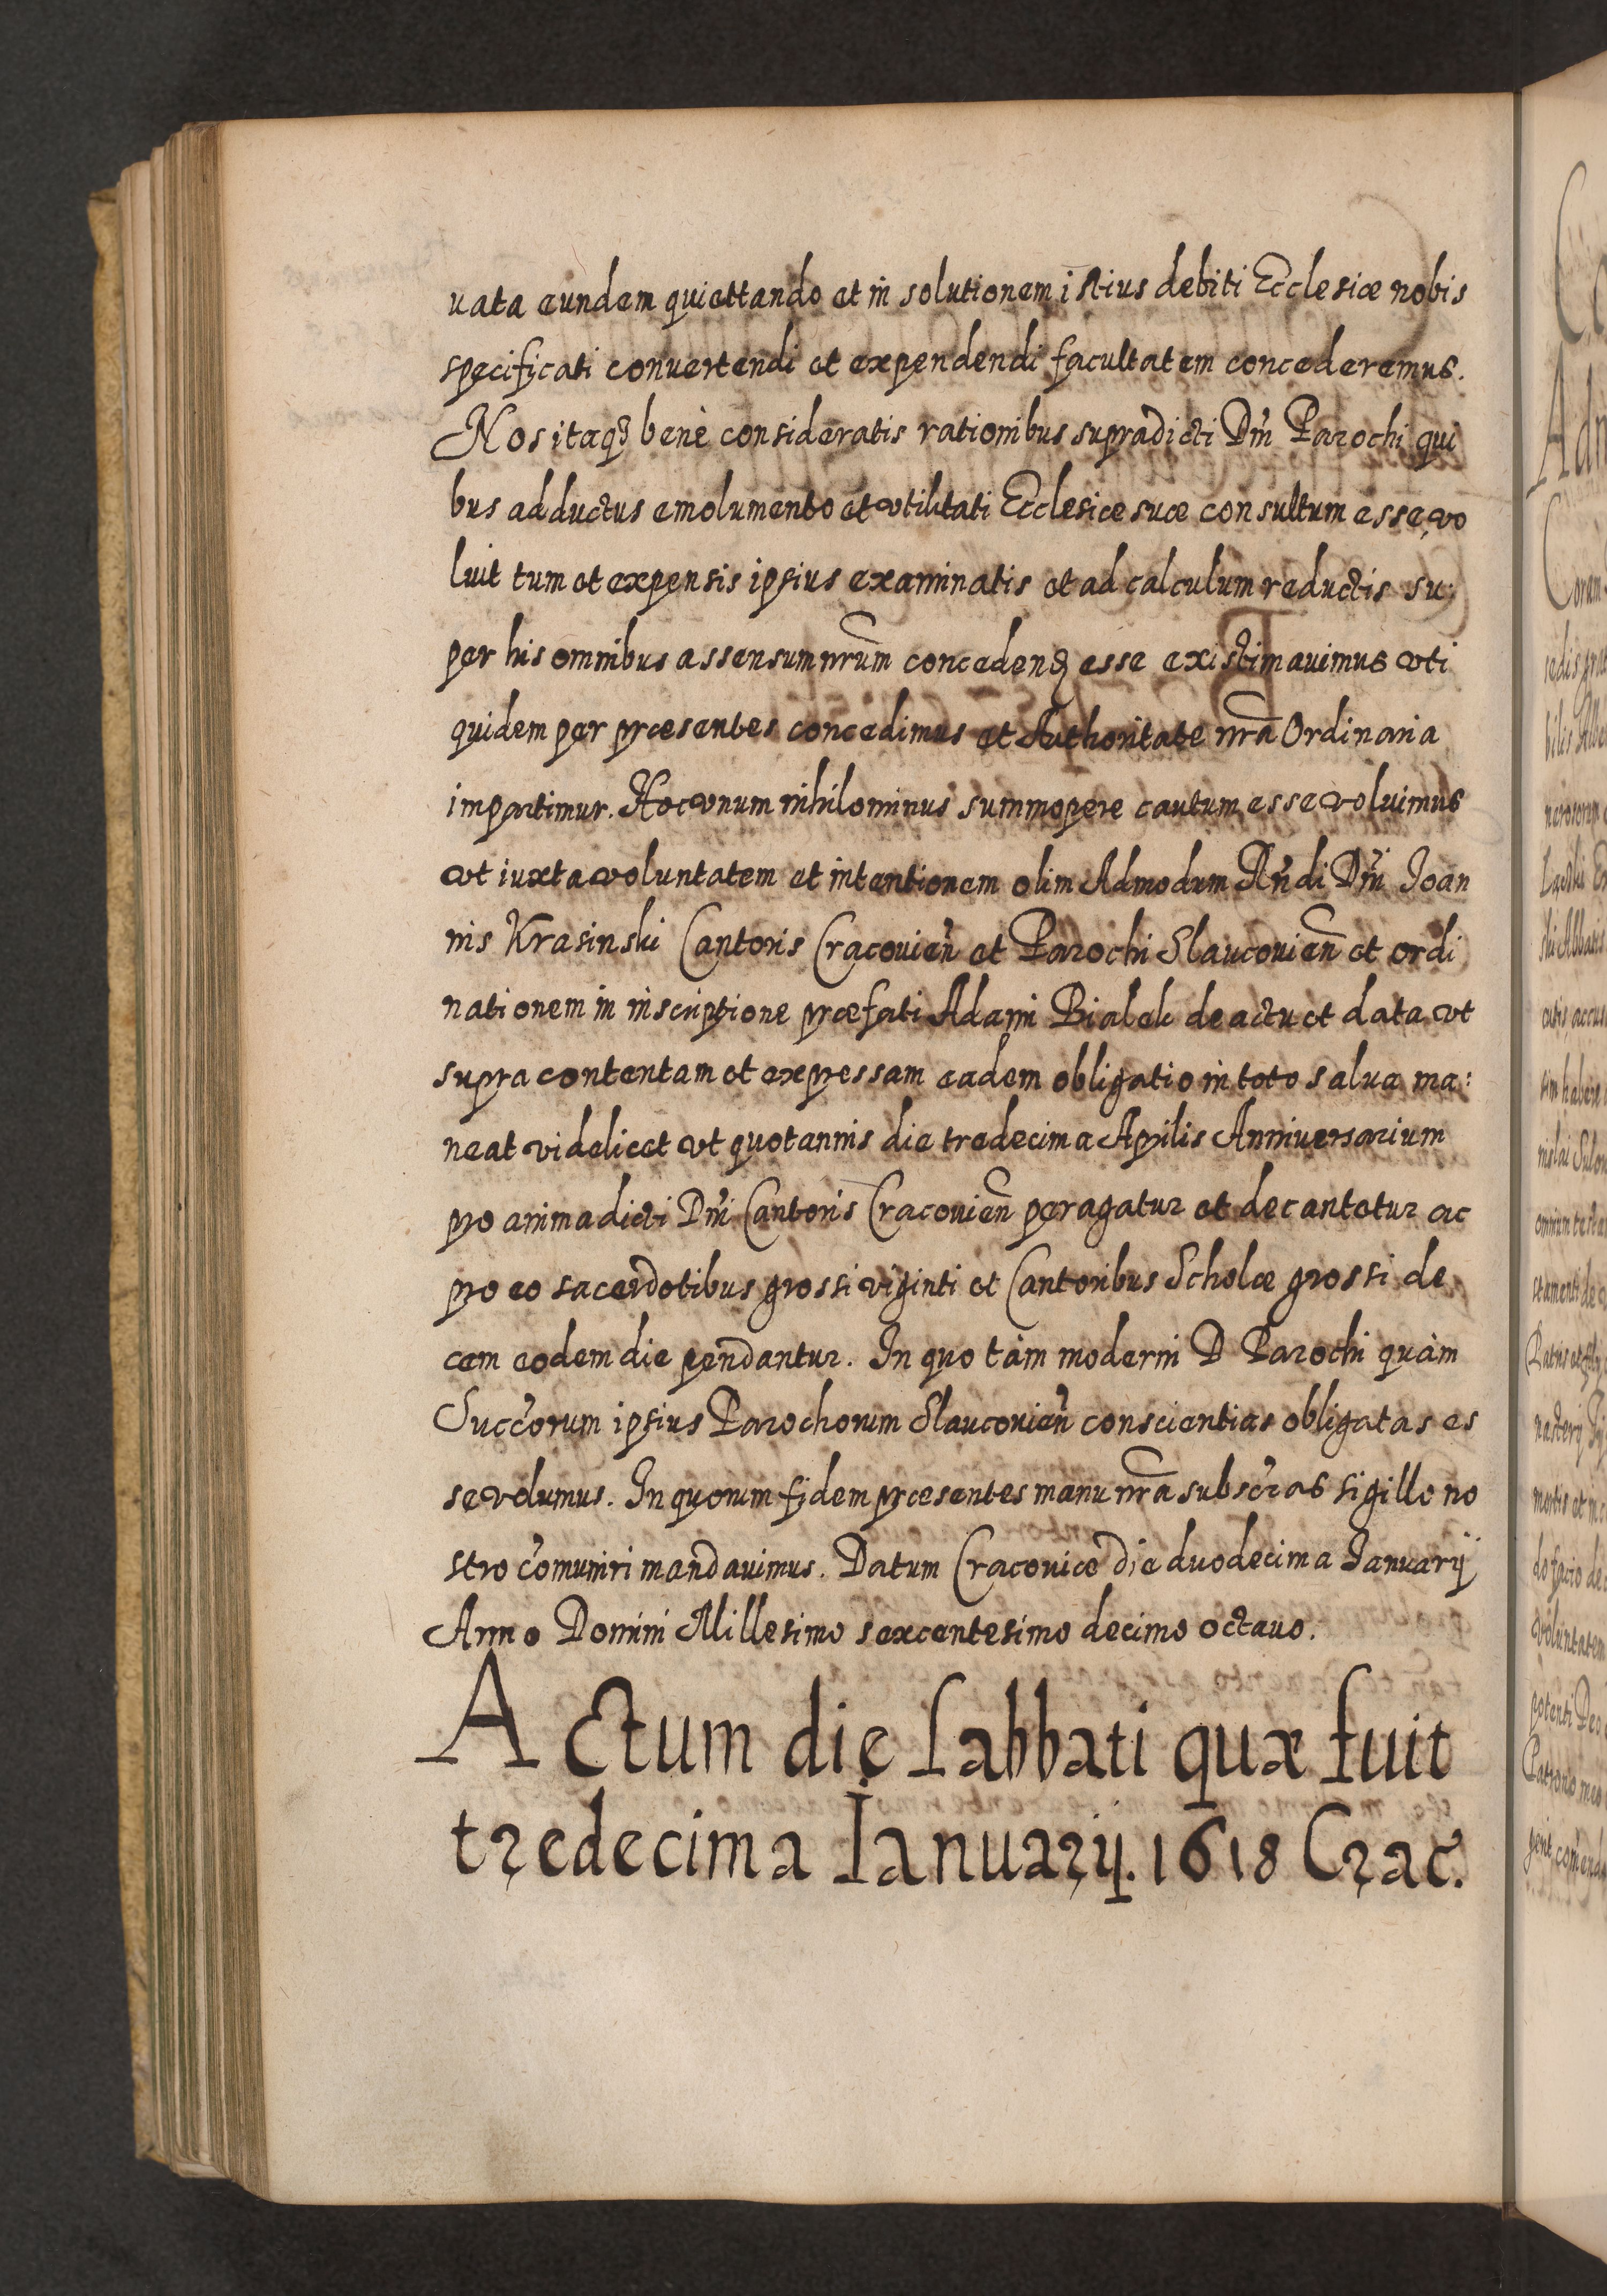 uata eundem quiettando et in solutionem istius debiti Ecclesiæ nobis
specificati conuertendi et expendendi facultatem concederemus.
Nos itaqȝ benè consideratis rationibus supradicti Dñi Parochi qui
bus adductus emolumento et vtilitati Ecclesiæ suæ consultum esse vo
luit tum et expensis ipsius examinatis et ad calculum reductis su:
per his omnibus assensum nrum̃ concedenđ esse existimauimus vti
quidem per præsentes concedimus et Authoritate nrã Ordinaria
impartimur. Hoc vnum nihilominus summopere cautum esse voluimus
vt iuxta voluntatem et intentionem olim Admodum Rñdi Dñi Ioan
nis Krasinski Cantoris Cracouien̄ et Parochi Slauconien̄ et ordi
nationem in inscriptione præfati Adami Bialek de actu et data vt
supra contentam et expressam eadem obligatio in toto salua ma:
neat videlicet vt quotannis die tredecima Aprilis Anniuersarium
pro anima dicti Dñi Cantoris Cracouien̄ peragatur et decantetur ac
pro eo sacerdotibus grossi viginti et Cantoribus Scholæ grossi de
cem eodem die pendantur. In quo tàm moderni D Parochi quàm
Succ̃orum ipsius Parochorum Slauconien̄ conscientias obligatas es
se volumus. In quorum fidem præsentes manu nrã subscr̃as sigillo no
stro com̃uniri mandauimus. Datum Cracouiæ die duodecima Ianuarij
Anno Domini Millesimo sexcentesimo decimo octauo.
Actum die sabbati quæ fuit
tredecima Ianuarij. 1618 Crac̃.